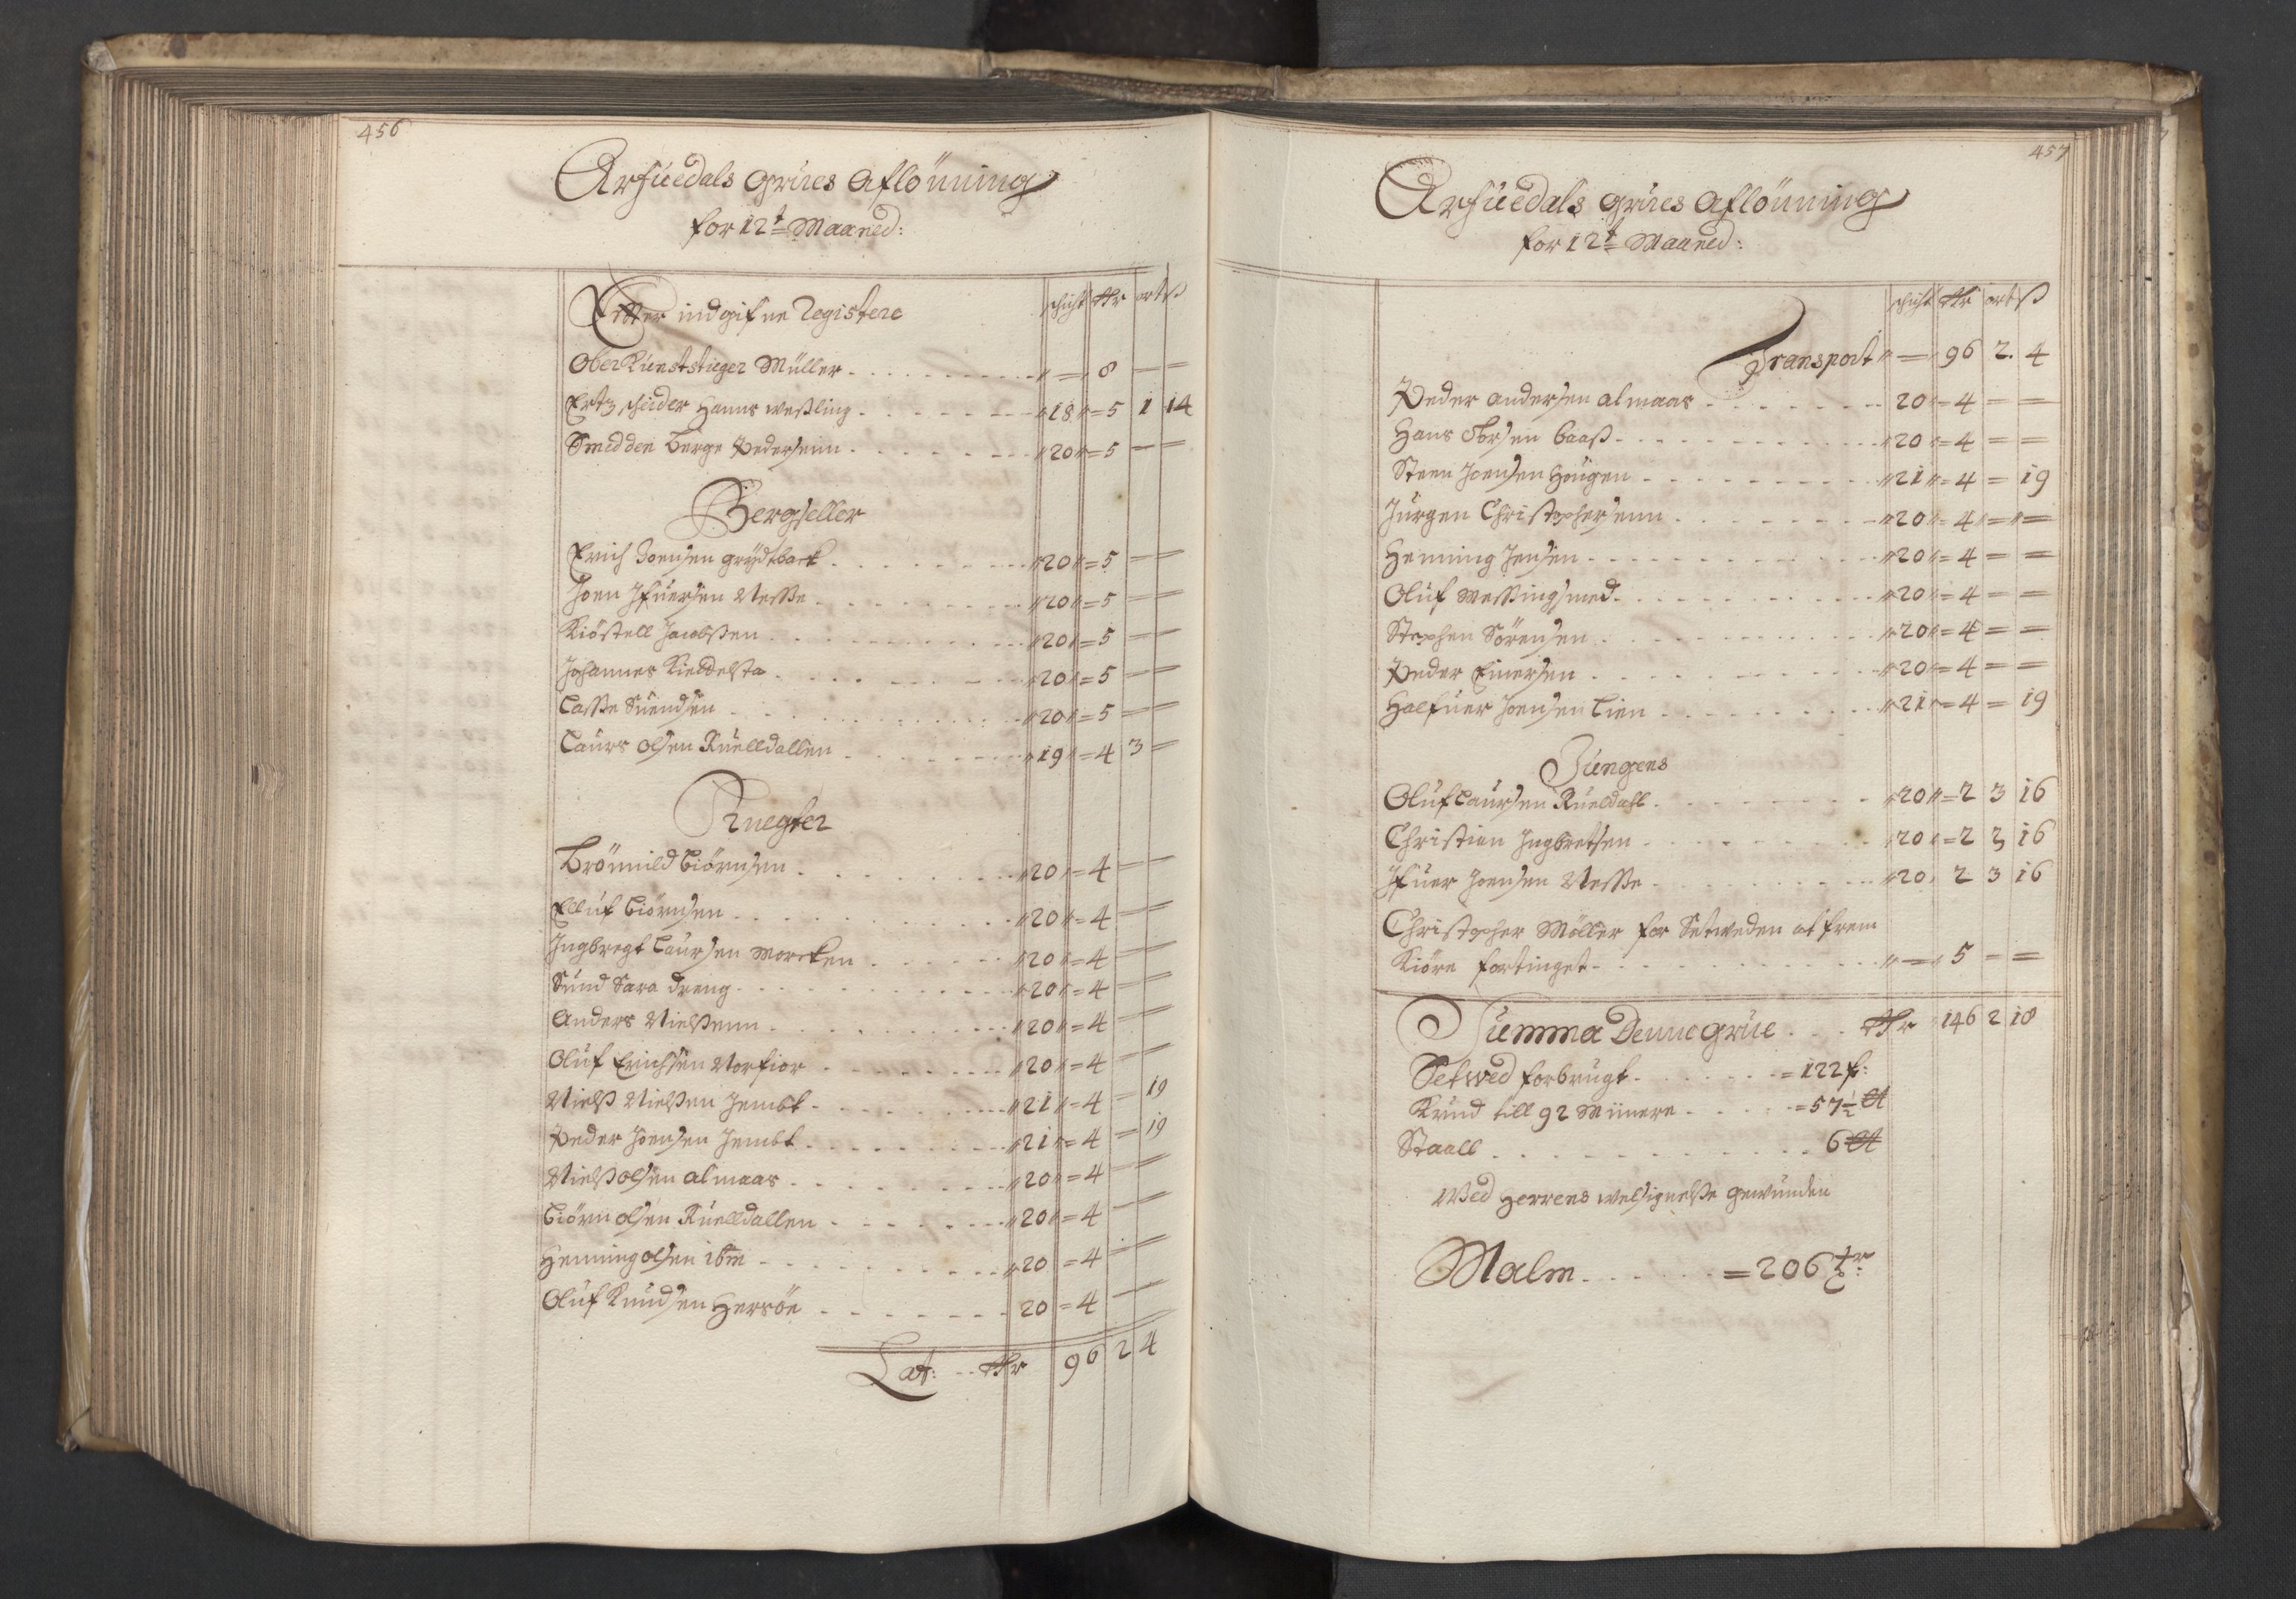 456
Arfuedals grues Aflönning
for 12t Maaned:
Efter indgifne Registere schicht Rr ort ß
Ober Kunststieger Müller - - - " — " 8 — =
Ertz scheider Hanns Weßling - - - " 18 " = 5 1 14
Smedden Berge Pedersenn - - - " 20 " = 5 — =
Bergseller
Erich Joensen grydtback - - - " 20 " = 5 — =
Joen Ifuersen Nesse - - - " 20 " = 5 — =
Kiöstell Jacobsen - - - " 20 " = 5 — =
Johannes Kieldelsta - - - " 20 " = 5 — =
Lasse Suendsen - - - " 20 " = 5 — =
Laurs Olsen Ruelldallen - - - " 19 " = 4 3 =
Knegter
Brönnild Biörnsen - - - " 20 " = 4 — =
Elluf Biörnsen - - - " 20 " = 4 — =
Ingbregt Laursen Morcken - - - " 20 " = 4 — =
Suend Sara dreng - - - " 20 " = 4 — =
Anders Nielßenn - - - " 20 " = 4 — =
Oluf Erichsen Norfior - - - " 20 " = 4 — =
Nielß Nielßen Jembt - - - " 21 " = 4 — 19
Peder Joensen Jembt - - - " 21 " = 4 — 19
Nielß Olsen Almaas - - - " 20 " = 4 — =
Biörn Olsen Ruelldallen - - - " 20 " = 4 — =
Henning Olsen ibm - - - " 20 = 4 — =
Oluf Knudsen Hersöe - - - 20 = 4 — =
Lat: - - Rr 96 2 4
457
Arfuedals grues Aflönning
for 12t Maaned:
schicht Rr ort ß
Transport " — " 96 2. 4
Peder Andersen Almaas - - - 20 " = 4 = =
Hans Torsen Baaß - - - " 20 " = 4 = =
Steen Joensen Hougen - - - " 21 " = 4 = 19
Jürgen Christophersenn - - - " 20 " = 4 " = " =
Henning Jensen - - - " 20 " = 4 = =
Oluf Messingsmed - - - " 20 " = 4 = =
Stephen Sörensen - - - " 20 " = 4 = =
Peder Einersen - - - " 20 " = 4 = =
Halfuer Joensen Lien - - - " 21 " = 4 = 19
Jungens
Oluf Laursen Rueldall - - - " 20 " = 2 3 16
Christian Ingbretsen - - - " 20 " = 2 3 16
Ifuer Joensen Nesse - - - " 20 " 2 3 16
Christopher Möller for Setweden at frem
Kiöre fortinget - - - " — " 5 = =
Summa Denne grue - - - Rr 146 2 18
Setwed forbrugt - - - = 122 f:
Krud till 92 Minere - - - = 57½ ℔
Staall - - - 6 ℔
Wed Herrens welsignelße gewunden
Malm - - - = 206 tr: